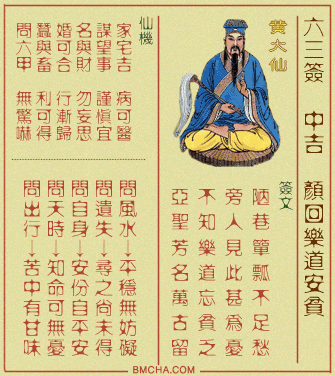 六三簽 中吉 顏回樂道安貧
黃大仙
簽文
陋巷簞瓢不足愁
旁人見此甚為憂
不知樂道忘貧乏
亞聖芳名萬古留
仙機
家宅吉 病可醫
謀望事 謹慎宜
名與財 勿妄思
婚可合 行漸歸
蠶與畜 利可得
問六甲 無驚嚇
問風水→平穩無妨礙
問遺失→尋之尚未得
問自身→安份自平安
問天時→知命可無憂
問出行→苦中有甘味
BMCHA.COM